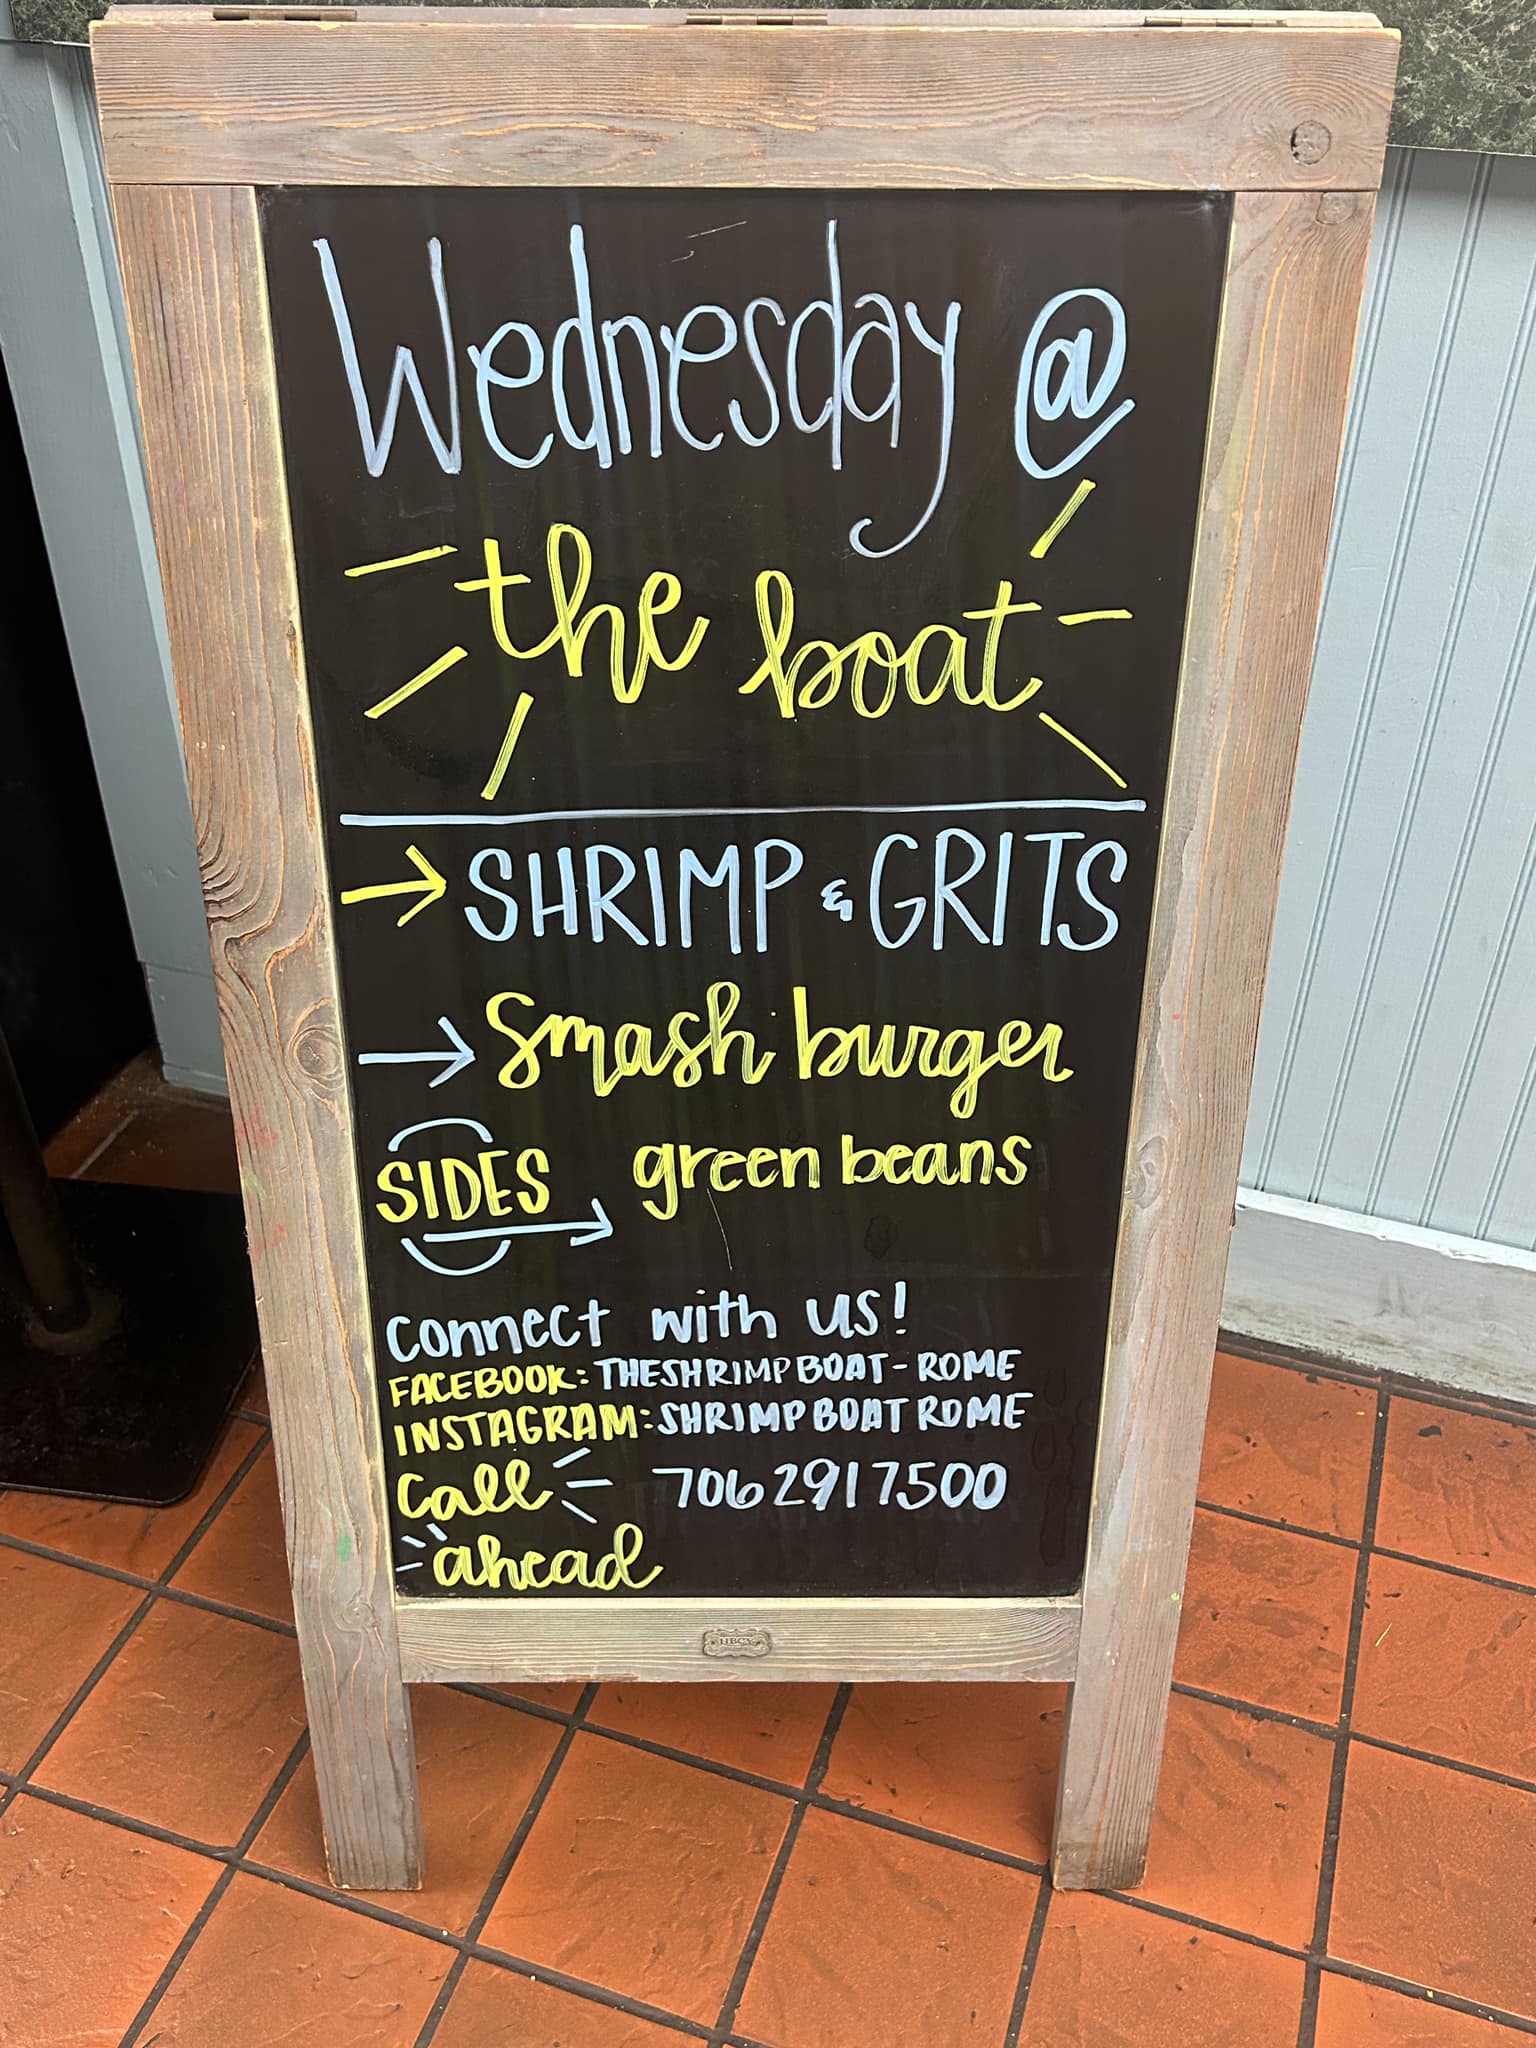 Wednesday @
the boat
→ SHRIMP & GRITS
→ Smash burger
SIDES → green beans
connect with us!
FACEBOOK: THESHRIMPBOAT-ROME
INSTAGRAM: SHRIMPBOATROME
Call 7062917500
ahead